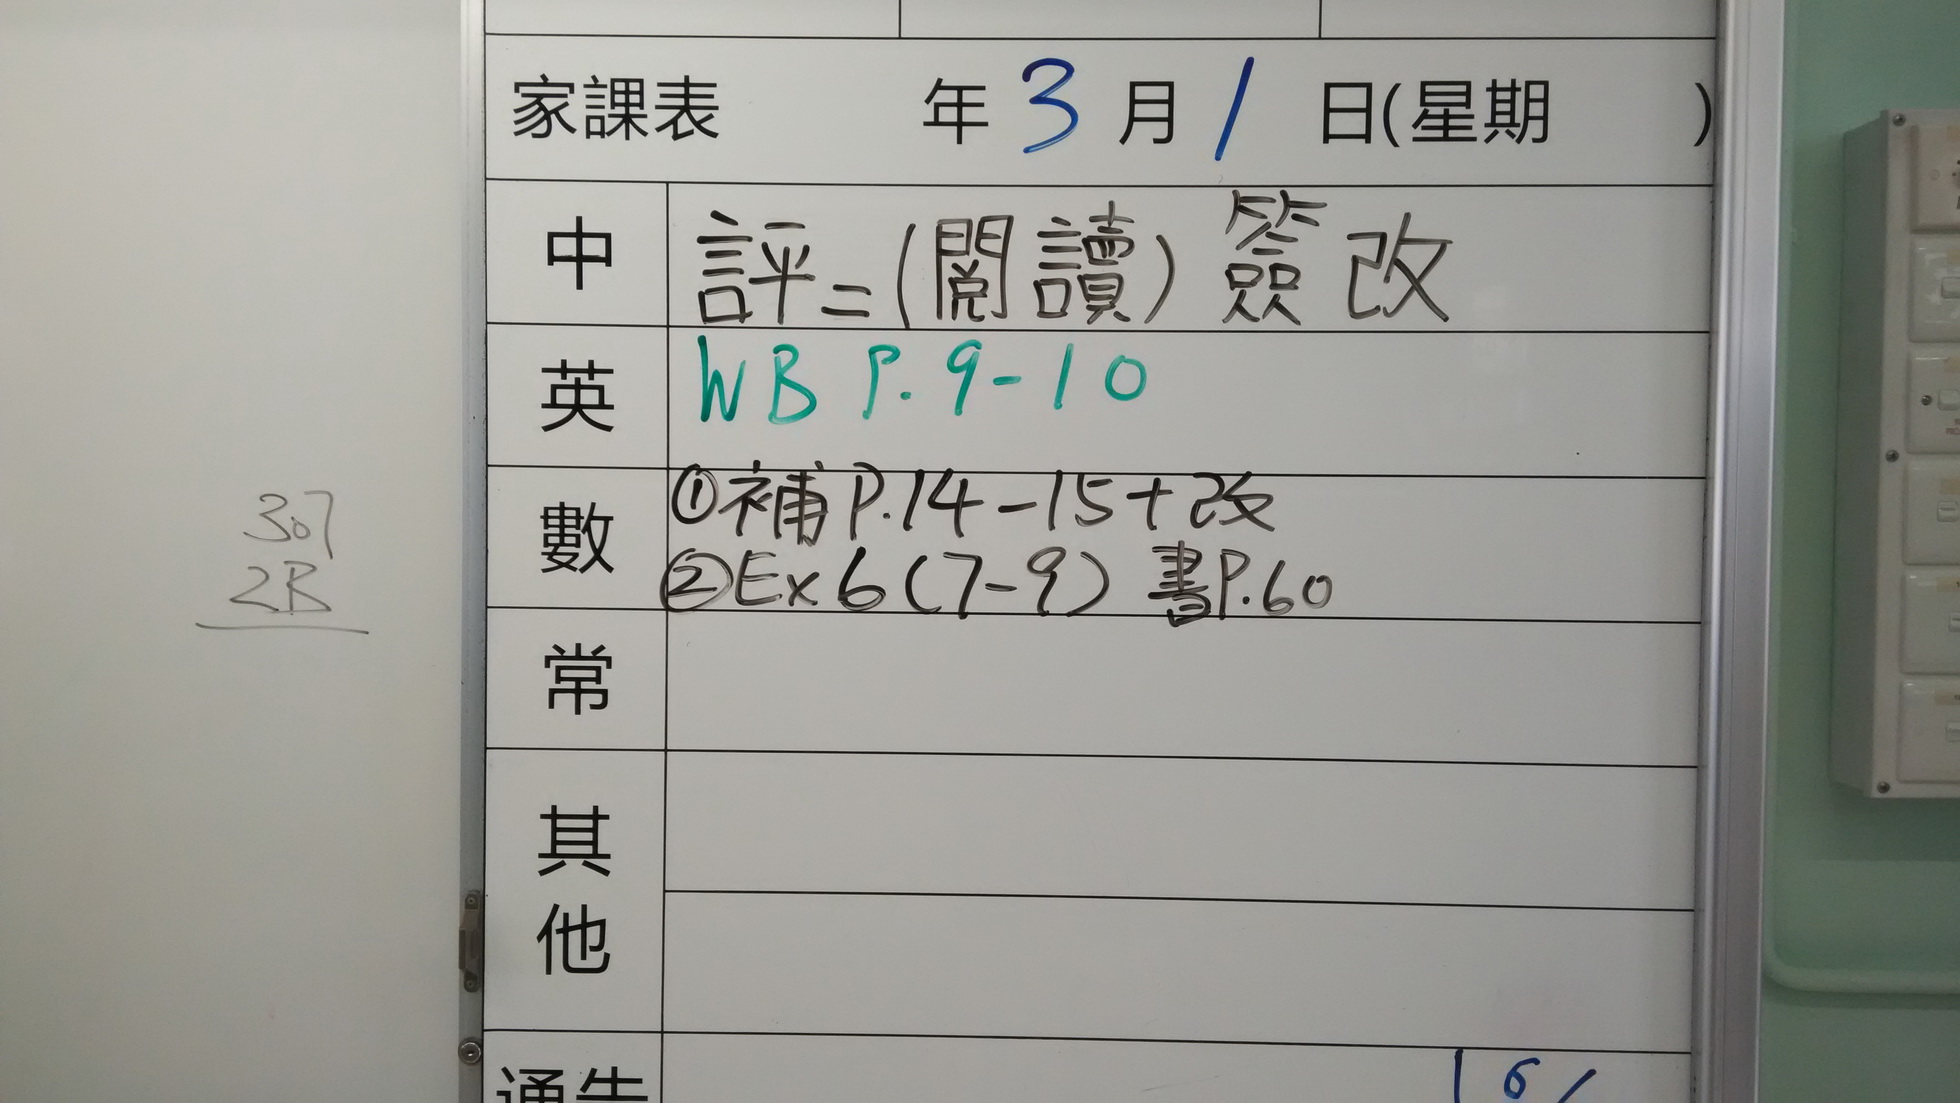 家課表 年 3 月 1 日(星期 )
中 評二(閱讀) 簽改
英 WB P.9-10
數 ①補P.14-15+改
②Ex6(7-9) 書P.60
常
其他
通告
307
2B